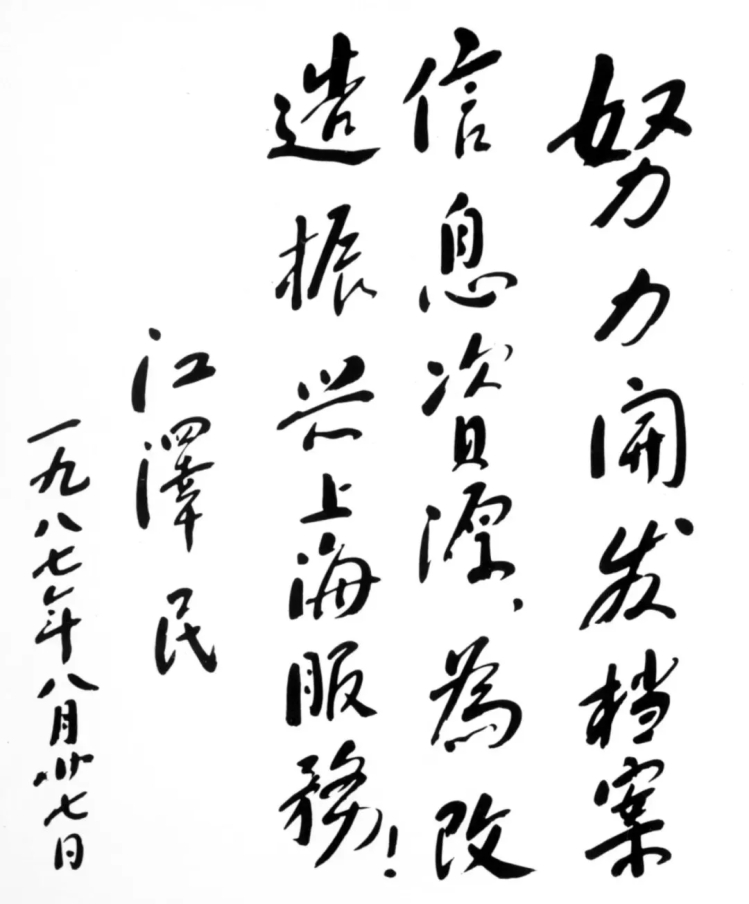 努力开发档案
信息資源，為改
造振兴上海服務！
江澤民
一九八七年八月廿七日